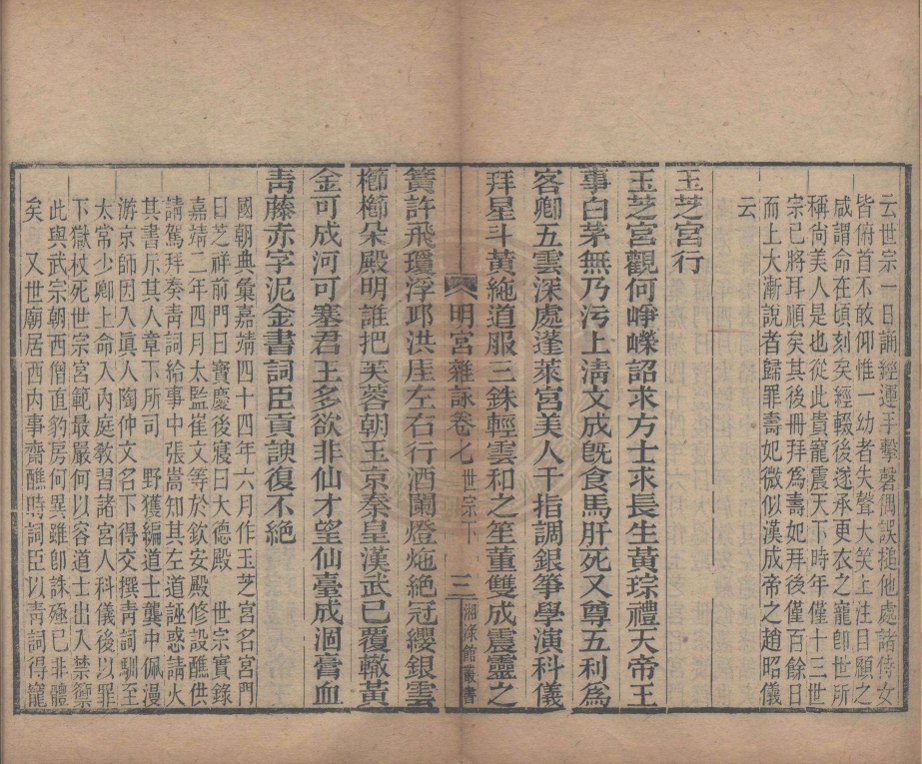 云世宗一日誦經運手擊磬偶誤搥他處諸侍女
皆俯首不敢仰惟一幼者失聲大笑上注目顧之
咸謂命在頃刻矣經輟後遂承更衣之寵卽世所
稱尙美人是也從此貴寵震天下時年僅十三世
宗已將耳順矣其後冊拜爲壽妃拜後僅百餘日
而上大漸說者歸罪壽妃微似漢成帝之趙昭儀
云
玉芝宮行
玉芝宮觀何崢嶸詔求方士求長生黃琮禮天帝王
事白茅無乃污上淸文成旣食馬肝死又尊五利爲
客卿五雲深處蓬萊宮美人十指調銀箏學演科儀
拜星斗黃絁道服三銖輕雲和之笙董雙成震靈之
明宮雜詠卷七 世宗下 三 湘綠館叢書
簧許飛瓊浮邛洪崖左右行酒闌燈炧絕冠纓銀雲
櫛櫛朵殿明誰把芙蓉朝玉京秦皇漢武已覆轍黃
金可成河可塞君王多欲非仙才望仙臺成涸膏血
靑藤赤字泥金書詞臣貢諛復不絕
國朝典彙嘉靖四十四年六月作玉芝宮名宮門
曰芝祥前門曰寶慶後寢曰大德殿 世宗實錄
嘉靖二年四月太監崔文等於欽安殿修設醮供
請駕拜奏靑詞給事中張嵩知其左道誣惑請火
其書斥其人章下所司 野獲編道士龔中佩漫
游京師因入眞人陶仲文名下得交撰靑詞馴至
太常少卿上命入內庭敎習諸宮人科儀後以罪
下獄杖死世宗宮範最嚴何以容道士出入禁籞
此與武宗朝西僧直豹房何異雖卽誅殛已非體
矣 又世廟居西內事齋醮時詞臣以靑詞得寵